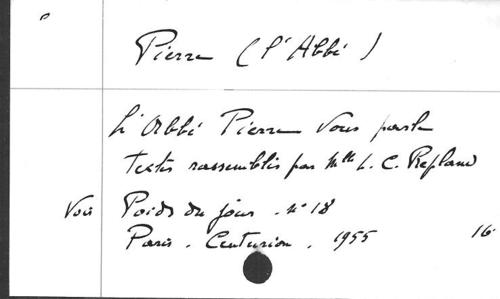 Pierre (l'Abbé)
L'Abbé Pierre vous parle
Textes rassemblés par Mlle L. C. Repland
Voir Poids du jour . N° 18
Paris . Centurion . 1955 16